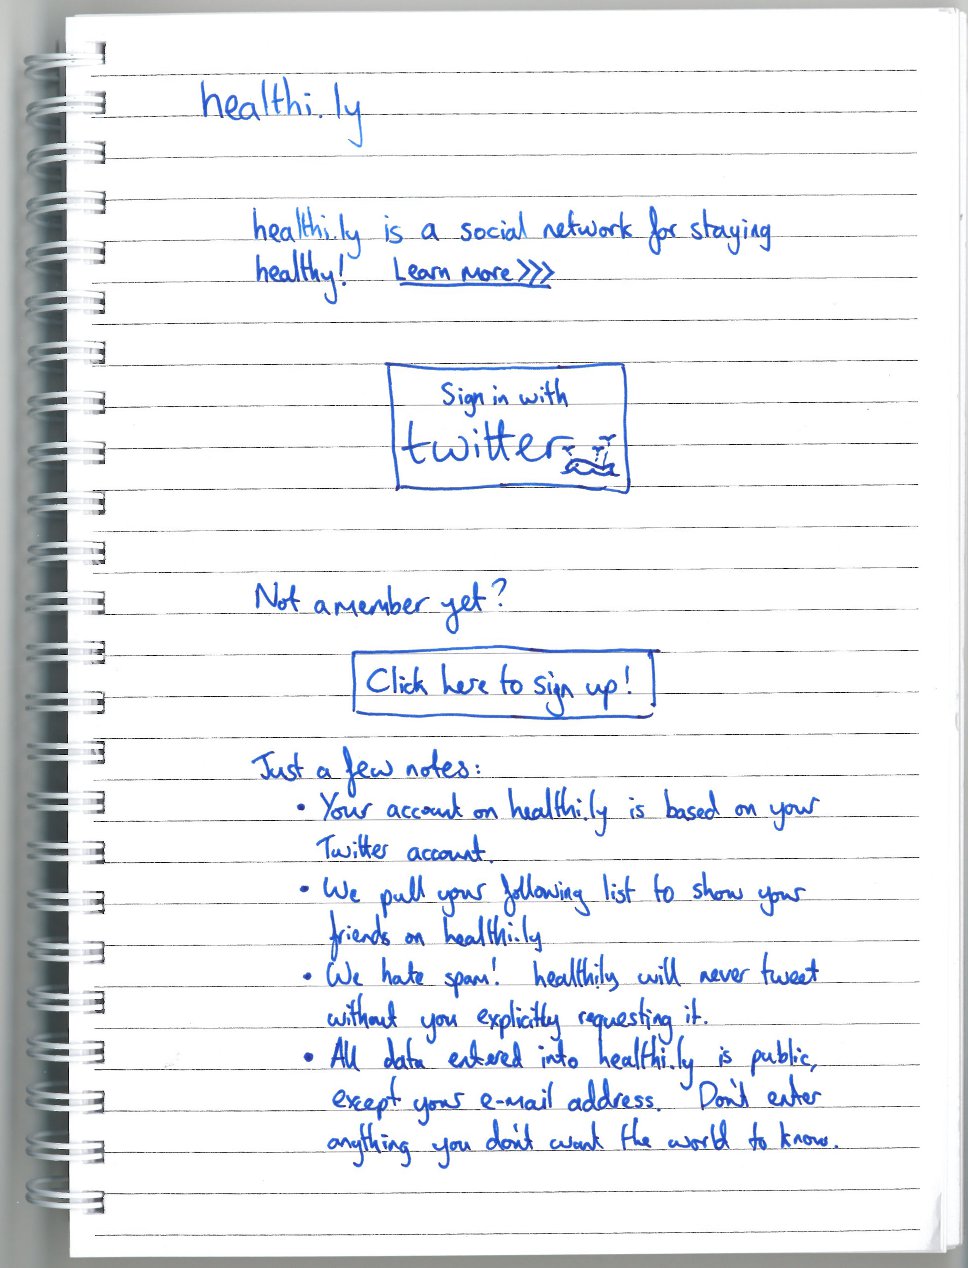 healthi.ly
healthi.ly is a social network for staying
healthy! Learn more >>>
Sign in with
twitter
Not a member yet?
Click here to sign up!
Just a few notes:
• Your account on healthi.ly is based on your
Twitter account.
• We pull your following list to show your
friends on healthi.ly
• We hate spam! healthi.ly will never tweet
without you explicitly requesting it.
• All data entered into healthi.ly is public,
except your e-mail address. Don't enter
anything you don't want the world to know.